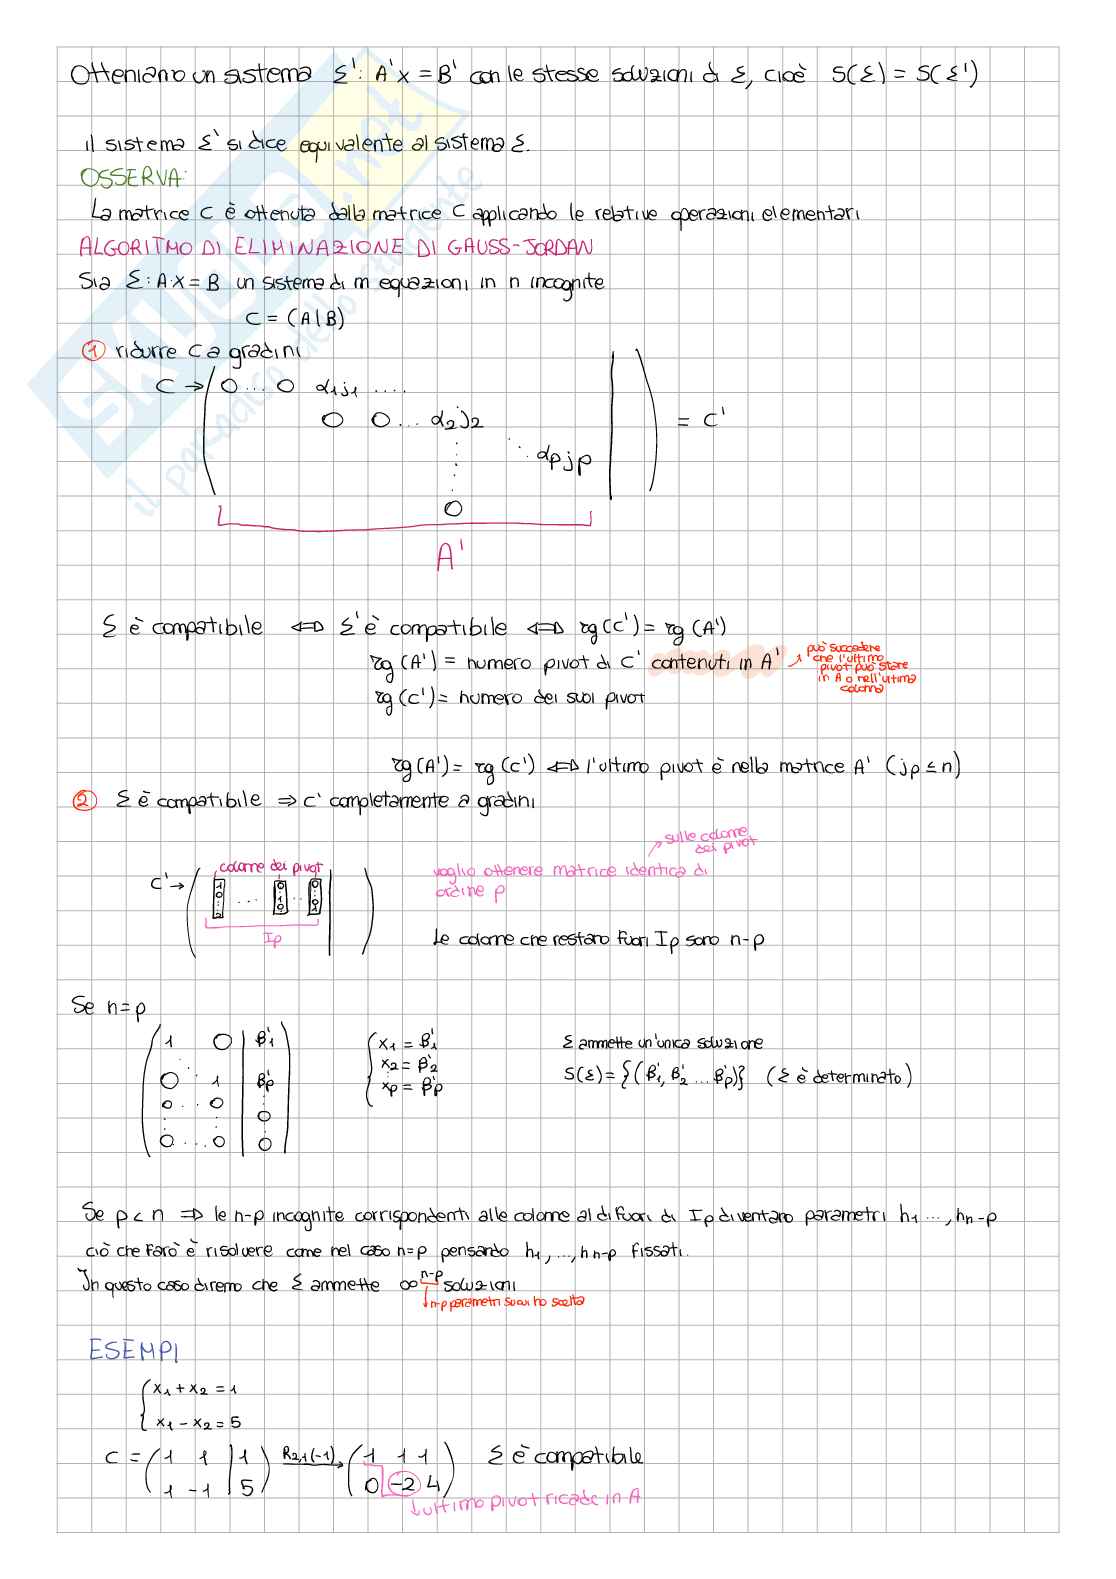 Otteniano un sistema Σ': A'x = B' con le stesse soluzioni di Σ, cioè S(Σ) = S(Σ')
il sistema Σ' si dice equivalente al sistema Σ.
OSSERVA:
La matrice C è ottenuta dalla matrice C applicando le relative operazioni elementari
ALGORITMO DI ELIMINAZIONE DI GAUSS-JORDAN
Sia Σ: A·X = B un sistema di m equazioni in n incognite
C = (A|B)
① ridurre C a gradini
C → ( 0 ... 0 α1j1 ....
0 0 ... α2j2 = C'
αpjp
0
A'
Σ è compatibile ⟺ Σ' è compatibile ⟺ rg(C') = rg(A')
rg(A') = numero pivot di C' contenuti in A'
può succedere
che l'ultimo
pivot può stare
in A o nell'ultima
colonna
rg(C') = numero dei suoi pivot
rg(A') = rg(C') ⟺ l'ultimo pivot è nella matrice A' (jp ≤ n)
② Σ è compatibile ⇒ C' completamente a gradini
sulle colonne
dei pivot
colonne dei pivot
voglio ottenere matrice identica di
ordine p
C' →
Ip
Le colonne che restano fuori Ip sono n-p
Se n = p
1 0 | β'1
0 1 | β'p
0 ... 0 | 0
0 ... 0 | 0
x1 = β'1
x2 = β'2
xp = β'p
Σ ammette un'unica soluzione
S(Σ) = {(β'1, β'2 ... β'p)} (Σ è determinato)
Se p < n ⇒ le n-p incognite corrispondenti alle colonne al di fuori di Ip diventano parametri h1 ..., hn-p
ciò che farò è risolvere come nel caso n=p pensando h1, ..., hn-p fissati.
In questo caso diremo che Σ ammette ∞^n-p soluzioni
↓ n-p parametri su cui ho scelta
ESEMPI
x1 + x2 = 1
x1 - x2 = 5
C = ( 1 1 | 1 ) R2,1(-1) → ( 1 1 1 ) Σ è compatibile
1 -1 | 5 0 -2 4
↓ ultimo pivot ricade in A
SKUOLA.net
il paradiso dello studente